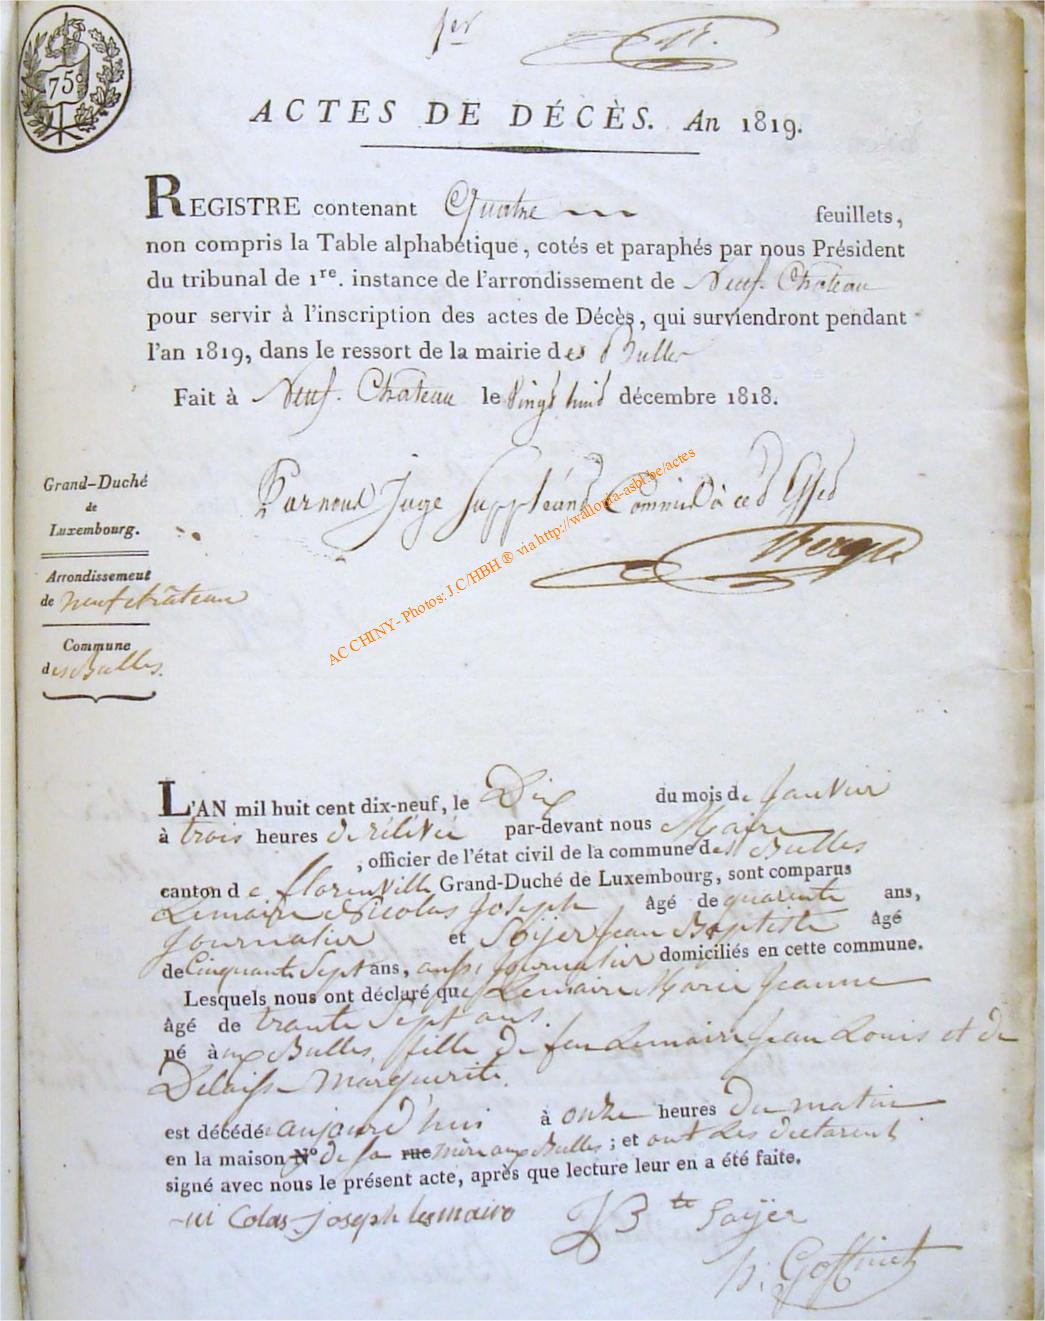 1er
75c
ACTES DE DÉCÈS. An 1819.
REGISTRE contenant Quatre feuillets,
non compris la Table alphabétique, cotés et paraphés par nous Président
du tribunal de 1re. instance de l'arrondissement de Neuf-Chateau
pour servir à l'inscription des actes de Décès, qui surviendront pendant
l'an 1819, dans le ressort de la mairie des Bulles
Fait à Neuf-Chateau le Vingt huit décembre 1818.
Par nous Juge Suppléant Commis à cet Effet
Grand-Duché
de
Luxembourg.
Arrondissement
de neufchâteau
Commune
des Bulles.
AC CHINY - Photos: J.C/HBH ® via http://wallonia-asbl.be/actes
L'AN mil huit cent dix-neuf, le Dix du mois de Janvier
à trois heures de rélévée par-devant nous Maire
, officier de l'état civil de la commune des Bulles
canton de florenville Grand-Duché de Luxembourg, sont comparus
Lemaire Nicolas Joseph âgé de quarente ans,
Journalier et Soijer Jean Baptiste âgé
de Cinquante Sept ans, aussi Journalier domiciliés en cette commune.
Lesquels nous ont déclaré que Lemaire Marie Jeanne
âgé de trante Sept ans.
né à ux Bulles, fille de feu Lemaire Jean Louis et de
Delaisse Marguerite.
est décédée aujourd'hui à onze heures du matin
en la maison N° de sa rue mère aux Bulles ; et ont les déclarent
signé avec nous le présent acte, après que lecture leur en a été faite.
ni Colas joseph lesmaire
JB te Soÿer
h. Goffinet